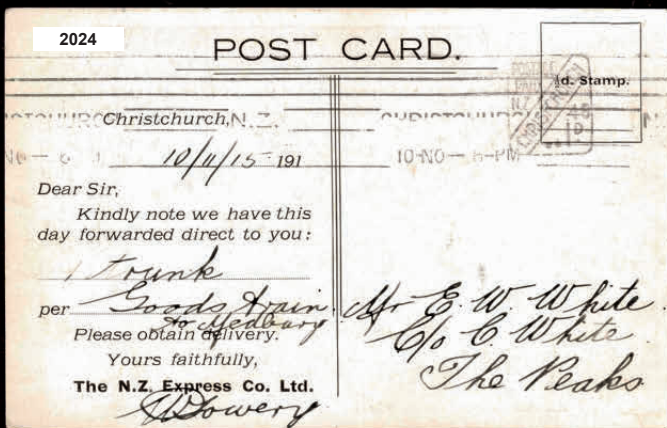 2024
POST CARD.
½d. Stamp.
POSTAGE
PAID
N.Z.
CHRISTCHURCH
Christchurch, N.Z.
10/11/15 191
10 NO — PM
Dear Sir,
Kindly note we have this
day forwarded direct to you:
1 Trunk
per Goods train
to Medbury
Please obtain delivery.
Yours faithfully,
The N.Z. Express Co. Ltd.
Mr E. W. White
C/o C. White
The Peaks